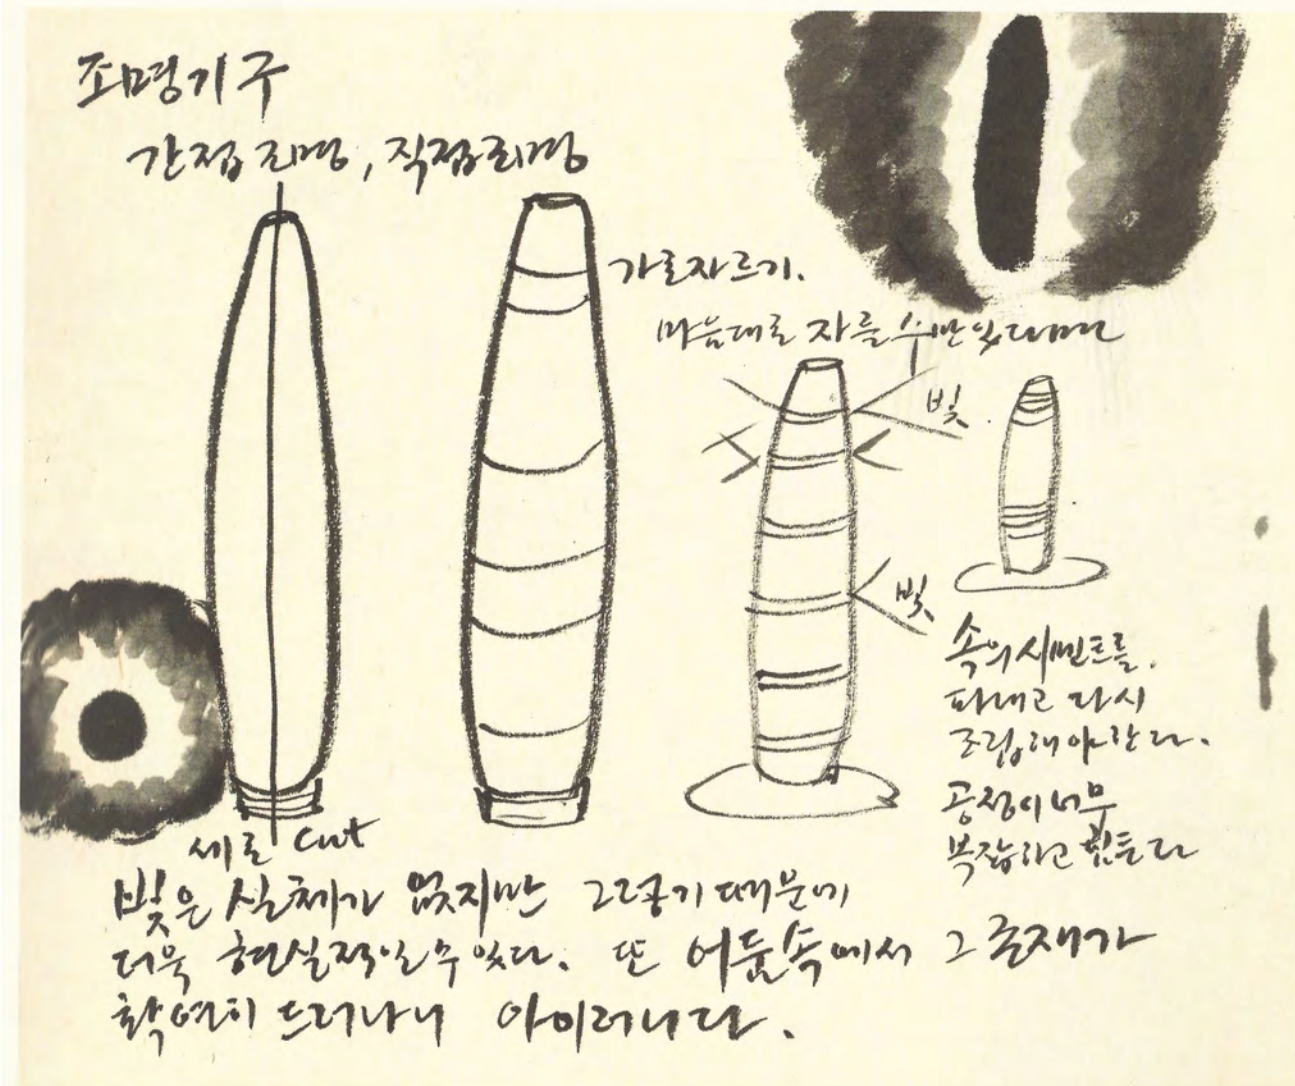 조명기구
간접조명, 직접조명
가로자르기.
마음대로 자를 수만 있다면
빛
빛
속의 시멘트를
파내고 다시
조립해야 한다.
공정이 너무
복잡하고 힘든다
세로 cut
빛은 실체가 없지만 그렇기 때문에
더욱 현실적일 수 있다. 또 어둠속에서 그 존재가
확연히 드러나니 아이러니다.